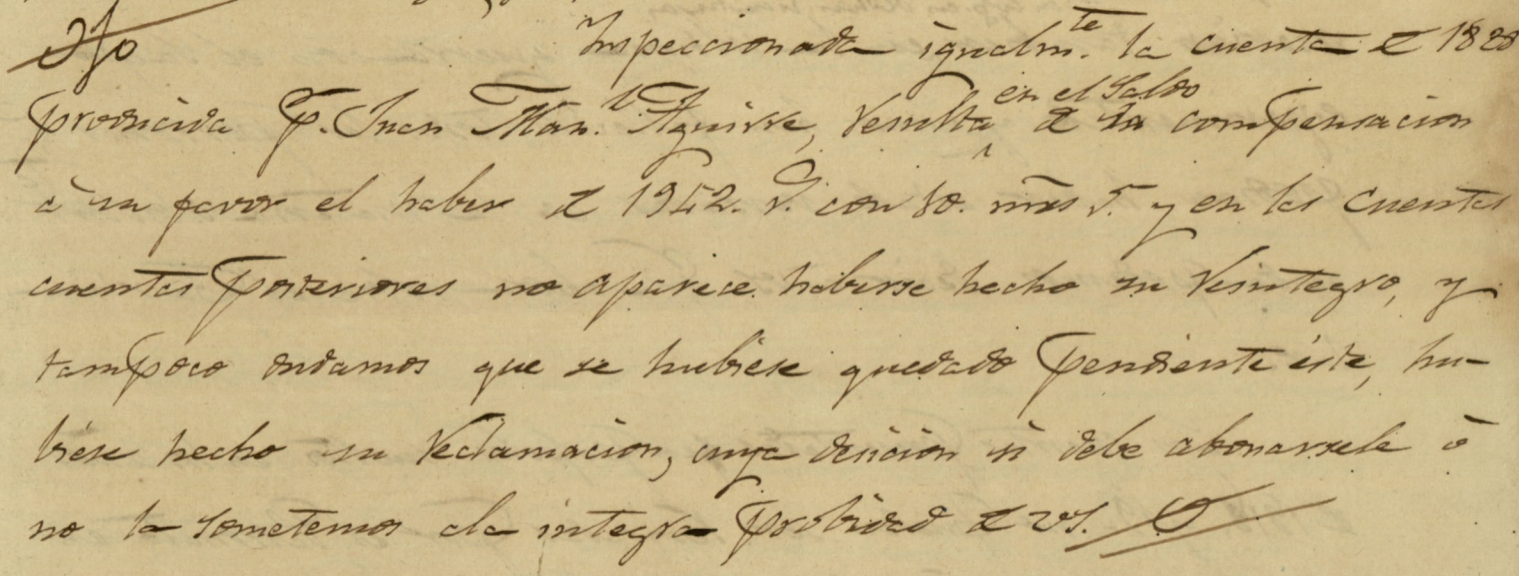 Ojo Inspeccionada igualm.te la cuenta de 1828
producida p. Juan Man.l Aguirre, resulta en el Saldo de la compensacion
à su favor el haber de 1952. p. con 80. mrs f. y en las cuentas
cuentas posteriores no aparece haberse hecho su reintegro, y
tampoco dudamos que se hubiese quedado pendiente éste, hu-
biese hecho su reclamacion, cuya desicion si debe abonarsele ò
no la sometemos ala integra probidad de VS.